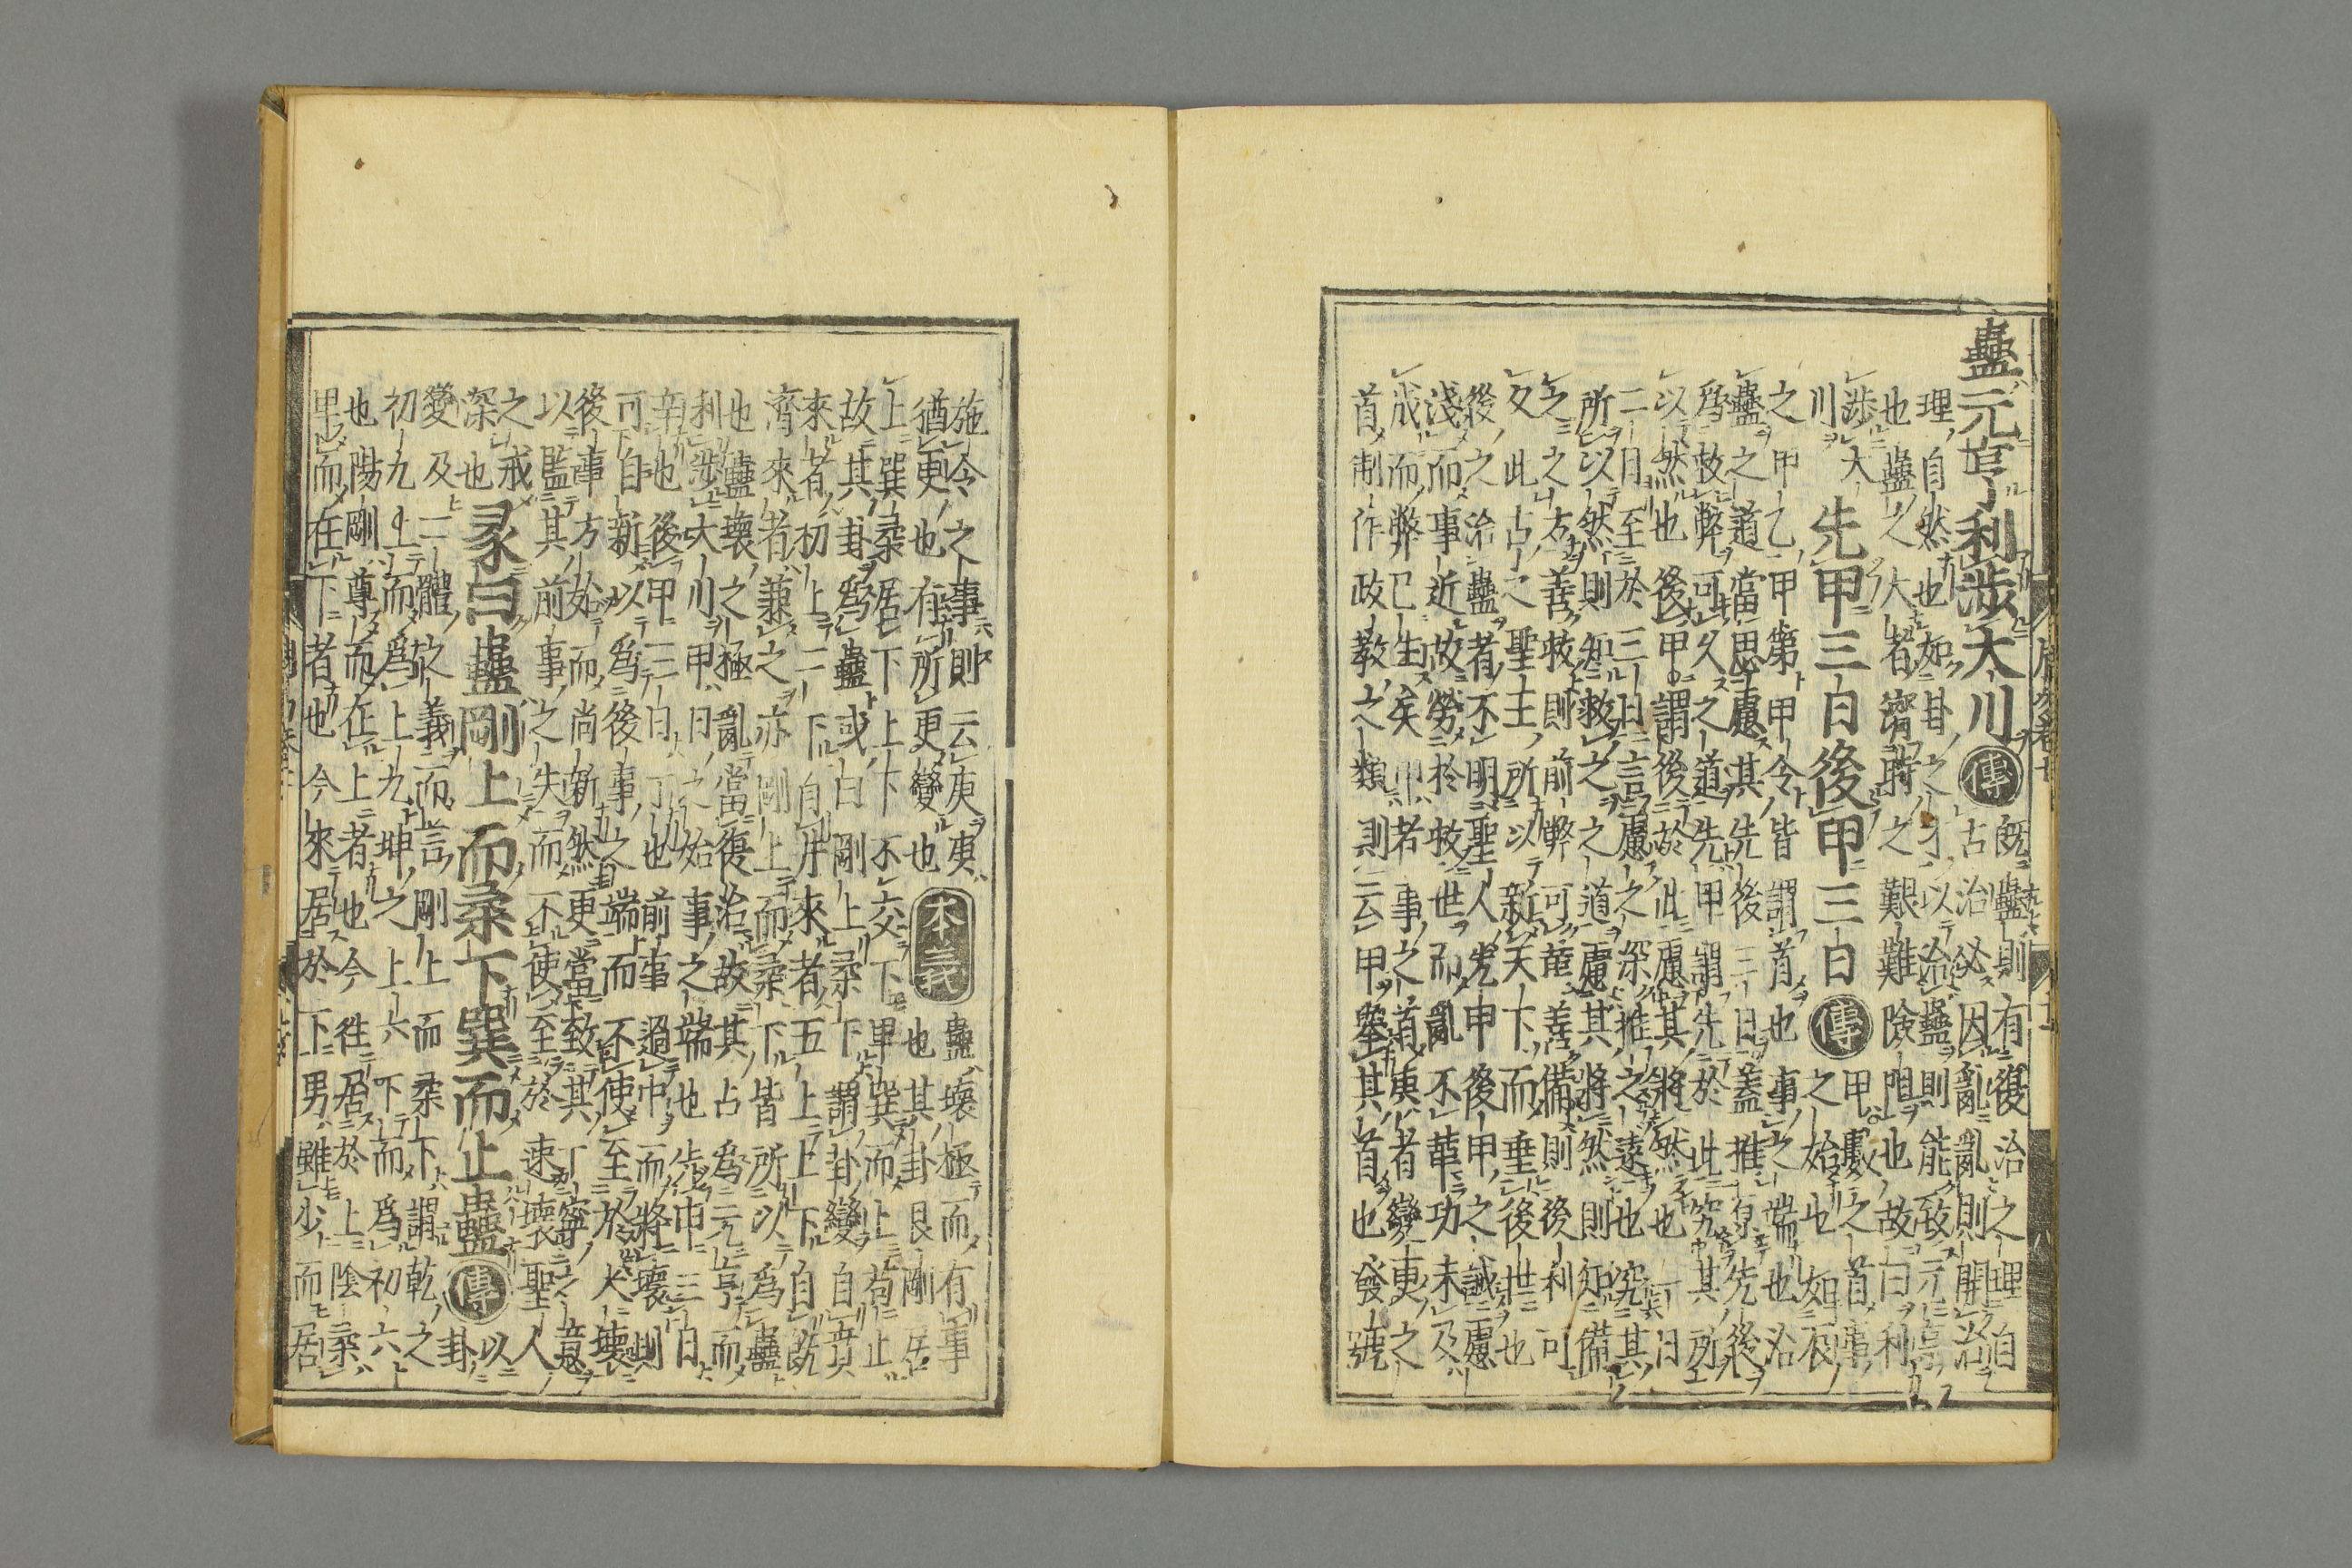 蠱元亨利涉大川傳既蠱則有復治之理自
古治必因亂亂則開治
理自然也如卦之才以治蠱則能致元亨
也蠱之大者濟時之艱難險阻也故曰利
涉大
川
先甲三日後甲三日傳甲數之首事
之始也如辰
之甲乙甲第甲令皆謂首也事之端也治
蠱之道當思慮其先後三日蓋推原先後
爲救弊可久之道先甲謂先於此究其所
以然也後甲謂後於此慮其將然也一日
二日至於三日言慮之深推之遠也究其
所以然則知救之之道慮其將然則知備
之之方善救則前弊可革善備則後利可
久此古之聖主所以新天下而垂後世也
後之治蠱者不明聖人先甲後甲之誡慮
淺而事近故勞於救世而亂不革功未及
成而弊已生矣甲者事之首庚者變更之
首制作政教之類則云甲舉其首也發號
施令之事則云庚庚
猶更也有所更變也
本義蠱壞極而有事
也其卦艮剛居
上巽柔居下上下不交下卑巽而上苟止
故其卦爲蠱或曰剛上柔下謂卦變自賁
來者初上二下自井來者五上上下自既
濟來者兼之亦剛上而柔下皆所以爲蠱
也蠱壞之極亂當復治故其占爲元亨而
利涉大川甲日之始事之端也先甲三日
辛也後甲三日丁也前事過中而將壞則
可自新以爲後事之端而不使至於大壞
後事方始而尚新然更當致其丁寧之意
以監其前事之失而不使至於速壞聖人
之戒
深也
彖曰蠱剛上而柔下巽而止蠱傳以
卦
變及二體之義而言剛上而柔下謂乾之
初九上而爲上九坤之上六下而爲初六
也陽剛尊而在上者也今往居於上陰柔
卑而在下者也今來居於下男雖少而居